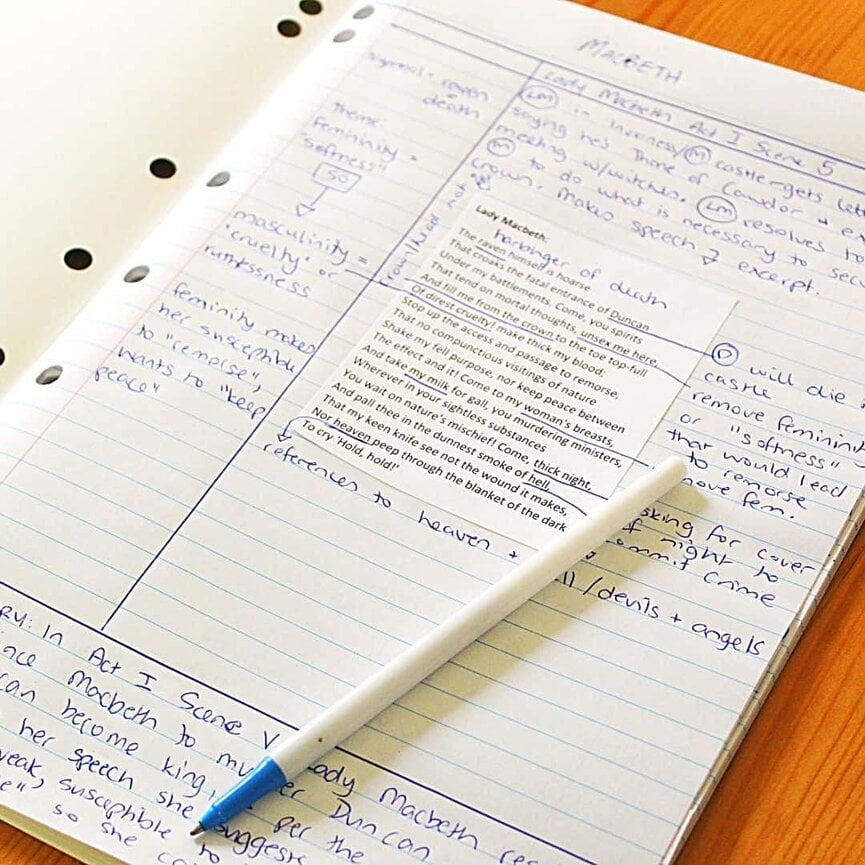 MACBETH
Symbol - raven
= death
Theme:
femininity =
"softness"
SO
masculinity =
"cruelty" or
ruthlessness
feminity makes
her susceptible
to "remorse",
wants to "keep
peace"
Lady Macbeth Act I Scene 5
LM in Inverness/M castle - gets
saying he's Thane of Cawdor +
meeting w/witches. LM resolves to
M to do what is necessary to
crown. Makes speech excerpt.
crown/head not
Lady Macbeth:
harbinger of death
The raven himself is hoarse
That croaks the fatal entrance of Duncan
Under my battlements. Come, you spirits
That tend on mortal thoughts, unsex me here,
And fill me from the crown to the toe top-full
Of direst cruelty! make thick my blood;
Stop up the access and passage to remorse,
That no compunctious visitings of nature
Shake my fell purpose, nor keep peace between
The effect and it! Come to my woman's breasts,
And take my milk for gall, you murdering ministers,
Wherever in your sightless substances
You wait on nature's mischief! Come, thick night,
And pall thee in the dunnest smoke of hell,
That my keen knife see not the wound it makes,
Nor heaven peep through the blanket of the dark
To cry 'Hold, hold!'
D will die
castle
remove
or "softness"
that would lead
to remorse
fem.
for cover
of night to
commit crime
references to heaven +
/devils + angels
In Act I Scene V Lady Macbeth
Macbeth to Duncan
can become king, per the
her speech she suggests
susceptible to
so she